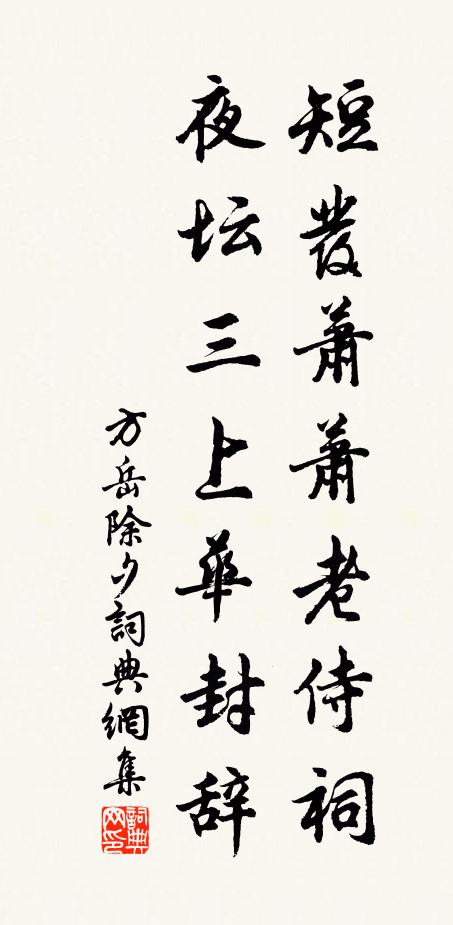 短發蕭蕭老侍祠
夜坛三上華封辞
方岳除夕詞典網集
詞典网印